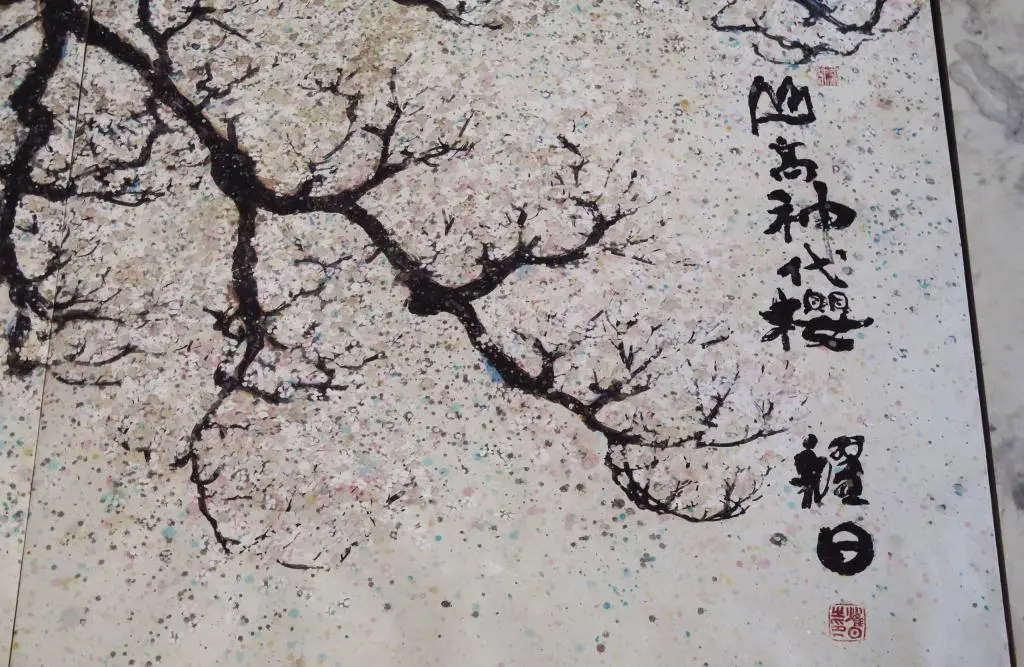 山高神代櫻
耀日